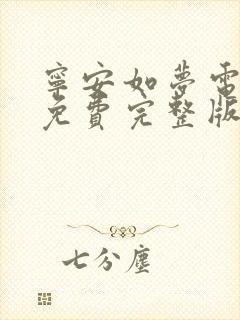 寧安如夢電
免費完整版
七分塵